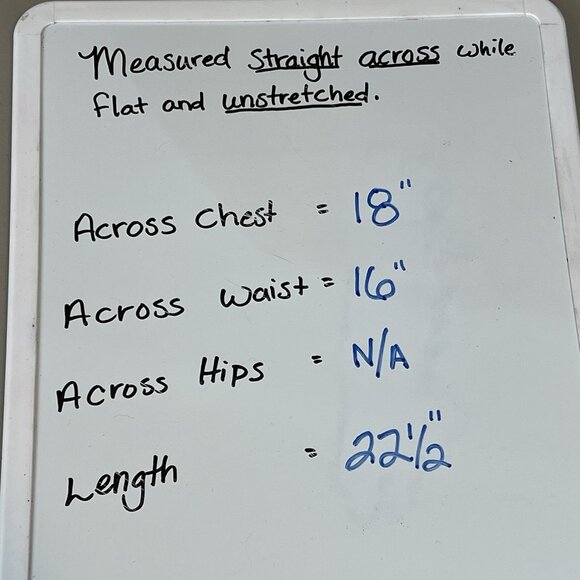 Measured straight across while
flat and unstretched.
Across Chest = 18"
Across Waist = 16"
Across Hips = N/A
Length = 22 1/2"